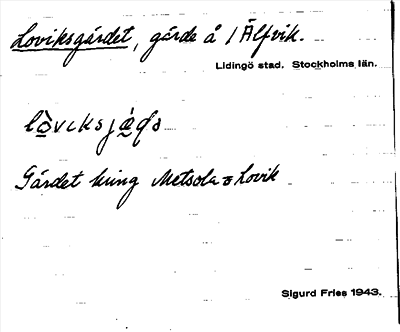 Loviksgärdet, gärde å 1 Älfvik.
Lidingö stad. Stockholms län.
Gärdet kring Metsola = Lovik
Sigurd Fries 1943.